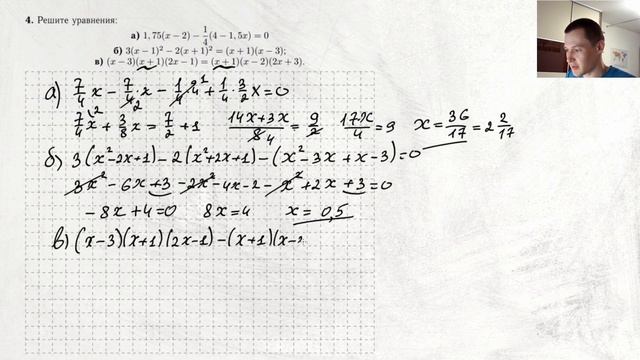 4. Решите уравнения:
а) 1,75(x − 2) − 1/4(4 − 1,5x) = 0
б) 3(x − 1)² − 2(x + 1)² = (x + 1)(x − 3);
в) (x − 3)(x + 1)(2x − 1) = (x + 1)(x − 2)(2x + 3).
а) 7/4 x − 7/4 · 2 − 1/4 · 4 + 1/4 · 3/2 x = 0
7/4 x + 3/8 x = 7/2 + 1   14x+3x/8 = 9/2   17x/4 = 9   x = 36/17 = 2 2/17
б) 3(x²−2x+1) − 2(x²+2x+1) − (x²−3x+x−3) = 0
3x² − 6x + 3 − 2x² − 4x − 2 − x² + 2x + 3 = 0
− 8x + 4 = 0   8x = 4   x = 0,5
в) (x−3)(x+1)(2x−1) − (x+1)(x−